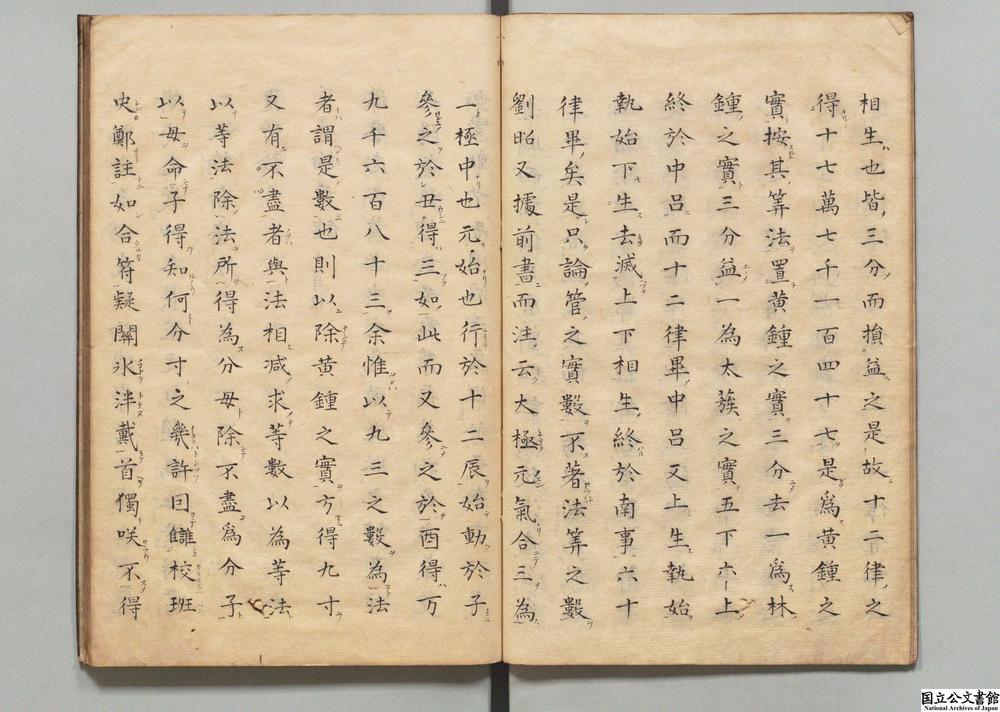 相生也皆三分而損益之是故十二律之
得十七萬七千一百四十七是為黄鍾之
實按其筭法置黄鍾之實三分去一為林
鍾之實三分益一為太蔟之實五下六上
終於中呂而十二律畢中呂又上生執始
執始下生去滅上下相生終於南事六十
律畢矣是只論管之實數不著法筭之數
劉昭又據前書而注云大極元氣合三為
一極中也元始也行於十二辰始動於子
參之於丑得三如此而又參之於酉得万
九千六百八十三余惟以九三之數為法
者謂是數也則以除黄鍾之實方得九寸
又有不盡者與法相减求等數以為等法
以等法除法所得為分母除不盡為分子
以母命子得知何分寸之幾許回讎校班
史鄭註如合符疑關氷泮戴首獨咲不得
国立公文書館
National Archives of Japan